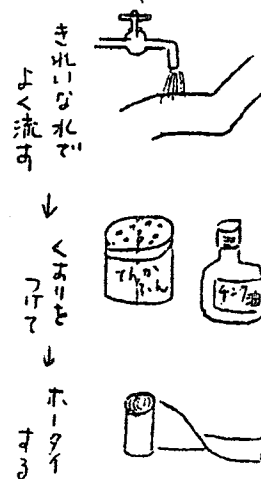 きれいな水で
よく流す
↓
くすりを
つけて
↓
ホータイ
する
てんか
ふん
チンク油